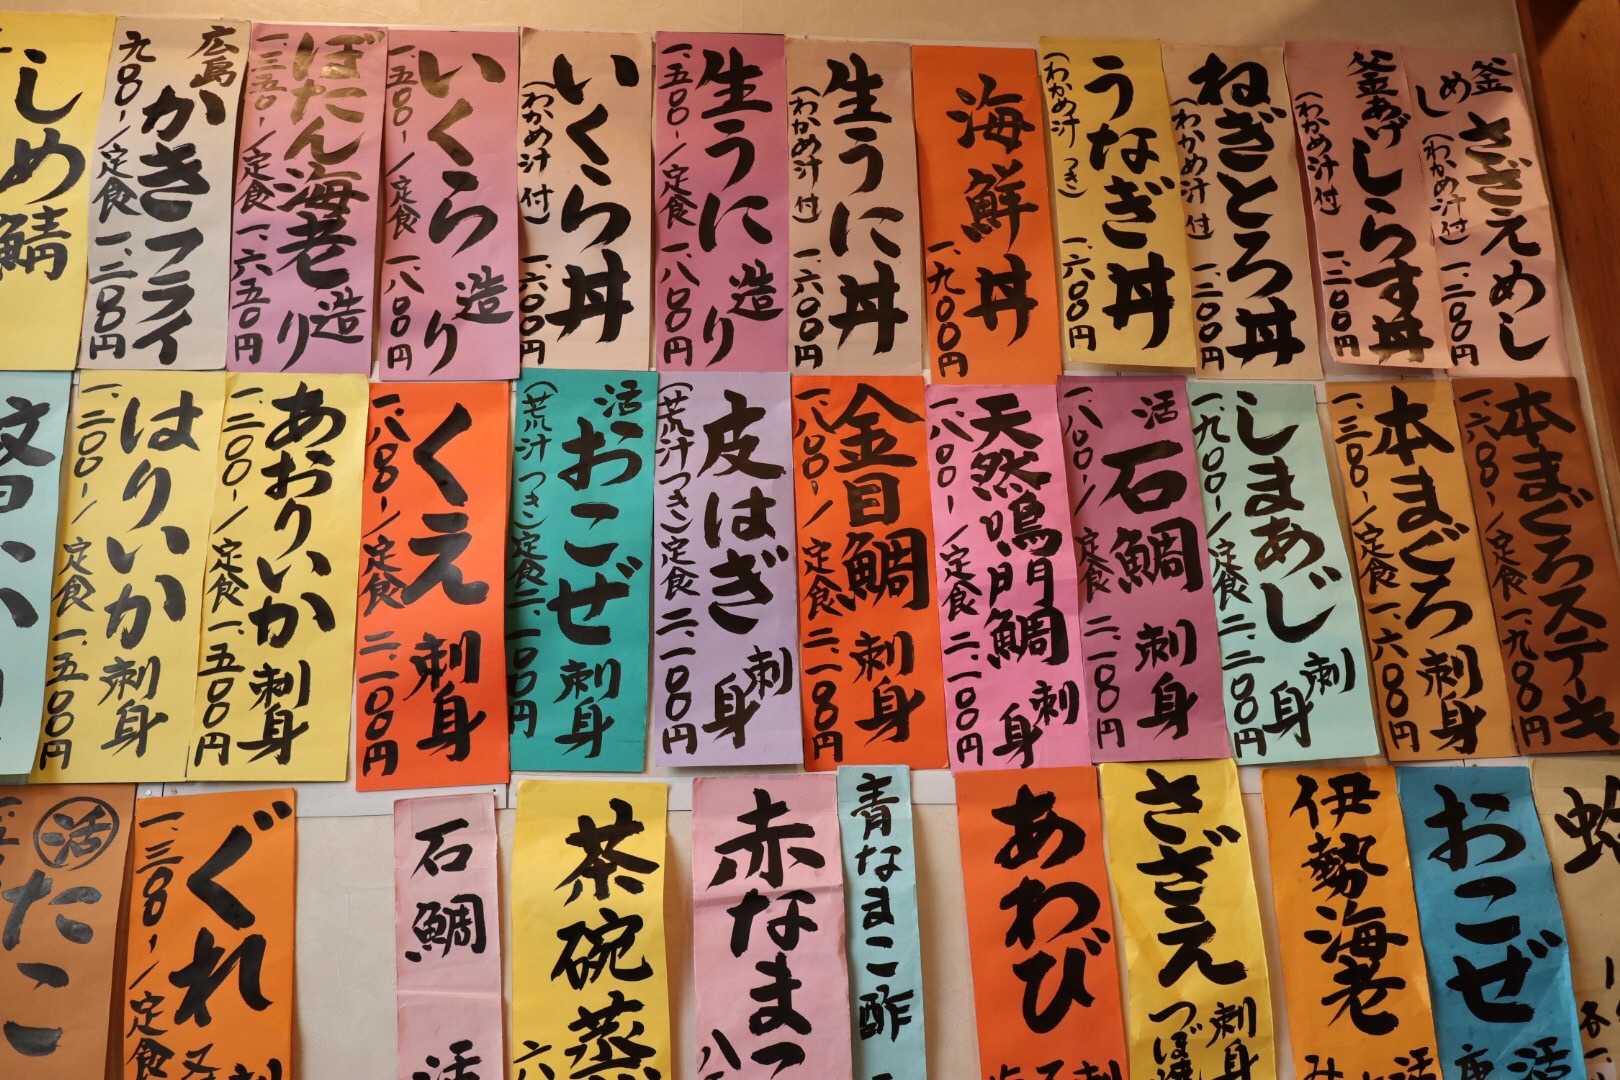 釜めし
さざえめし
(わかめ汁付) 一、二〇〇円
釜あげしらす丼
(わかめ汁付) 一、二〇〇円
ねぎとろ丼
(わかめ汁付) 一、二〇〇円
うなぎ丼
(わかめ汁つき) 一、六〇〇円
海鮮丼
一、九〇〇円
生うに丼
(わかめ汁付) 一、六〇〇円
生うに造り
一、五〇〇-/定食一、八〇〇円
いくら丼
(わかめ汁付) 一、六〇〇円
いくら造り
一、五〇〇-/定食一、八〇〇円
ぼたん海老造り
一、三五〇-/定食一、六五〇円
広島かきフライ
九〇〇-/定食一、二〇〇円
しめ鯖
本まぐろステーキ
一、六〇〇-/定食一、九〇〇円
本まぐろ刺身
一、三〇〇-/定食一、六〇〇円
しまあじ刺身
一、九〇〇-/定食二、二〇〇円
活石鯛刺身
一、八〇〇-/定食二、一〇〇円
天然鳴門鯛刺身
一、八〇〇-/定食二、一〇〇円
金目鯛刺身
一、八〇〇-/定食二、一〇〇円
皮はぎ刺身
(荒汁つき)定食二、一〇〇円
活おこぜ刺身
(荒汁つき)定食二、一〇〇円
くえ刺身
一、八〇〇-/定食二、一〇〇円
あおりいか刺身
一、二〇〇-/定食一、五〇〇円
はりいか刺身
一、二〇〇-/定食一、五〇〇円
おこぜ
活
伊勢海老
活
さざえ
刺身
つぼ焼
あわび
刺
青なまこ酢
赤なまこ
八
茶碗蒸
六
石鯛
活
ぐれ
一、三〇〇-/定食
活たこ